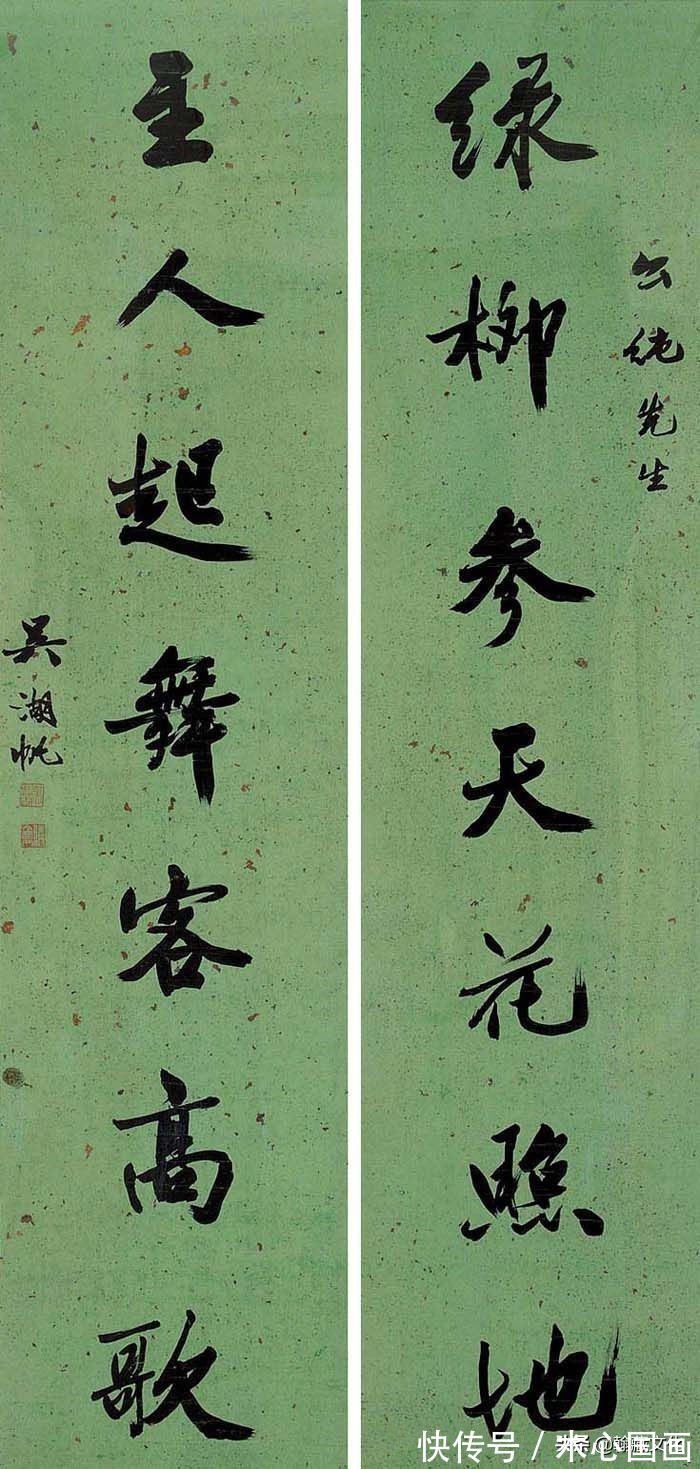 公纯先生
绿柳参天花照地
主人起舞客高歌
吴湖帆
快传号 / 心国画